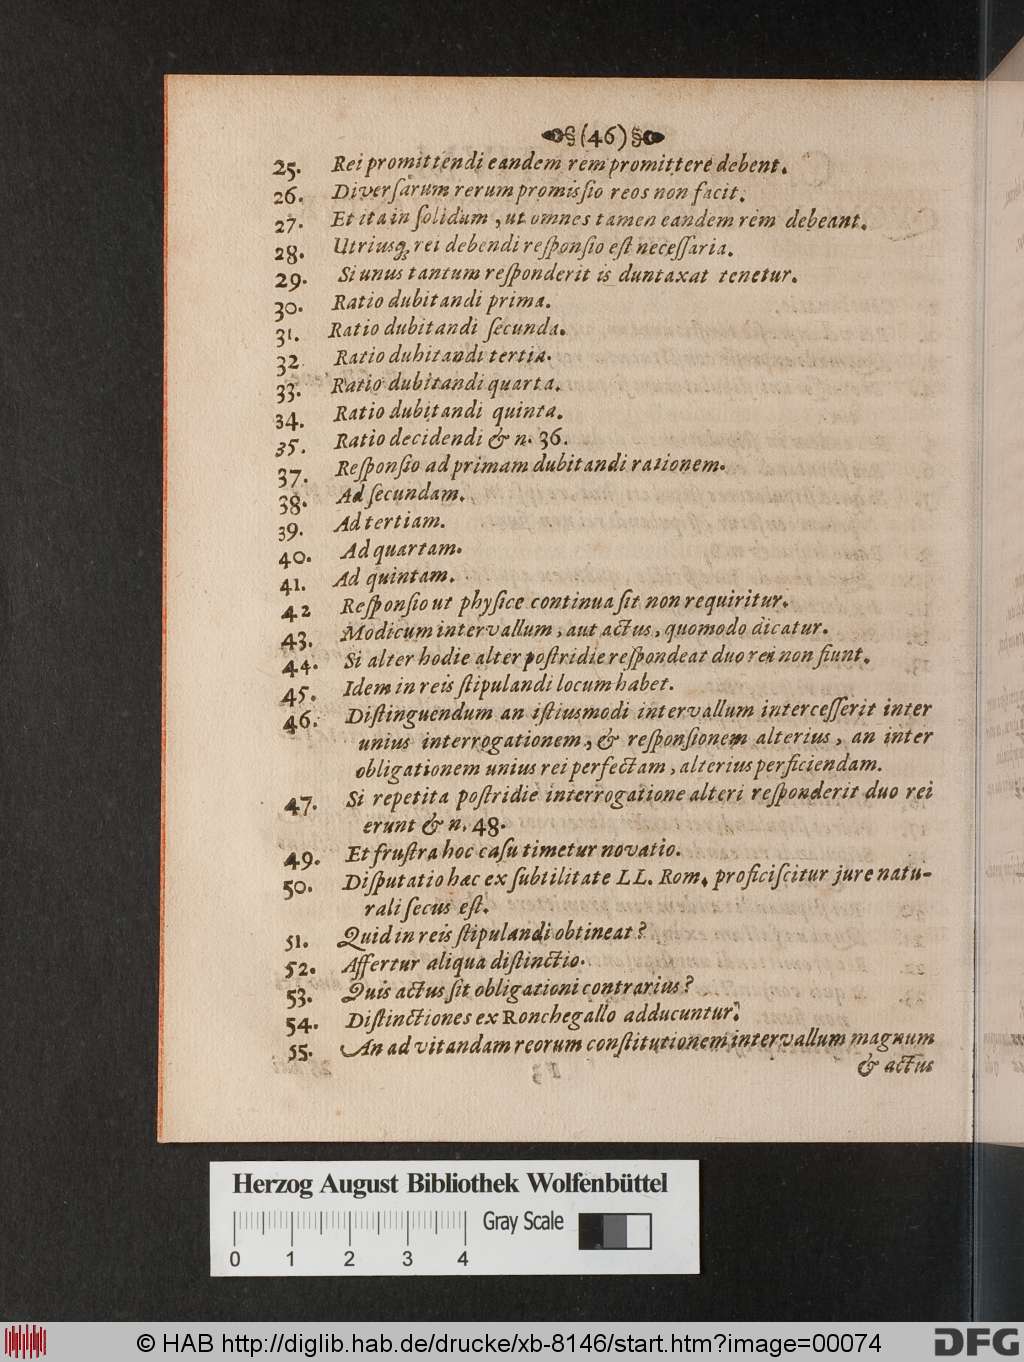 §(46)§
25. Rei promittendi eandem rem promittere debent.
26. Diverſarum rerum promiſsio reos non facit.
27. Et ita in ſolidum, ut omnes tamen eandem rem debeant.
28. Utriusq; rei debendi reſponſio eſt neceſſaria.
29. Si unus tantum reſponderit is duntaxat tenetur.
30. Ratio dubitandi prima.
31. Ratio dubitandi ſecunda.
32 Ratio dubitandi tertia.
33. Ratio dubitandi quarta.
34. Ratio dubitandi quinta.
35. Ratio decidendi & n. 36.
37. Reſponſio ad primam dubitandi rationem.
38. Ad ſecundam.
39. Ad tertiam.
40. Ad quartam.
41. Ad quintam.
42 Reſponſio ut phyſice continua ſit non requiritur.
43. Modicum intervallum, aut actus, quomodo dicatur.
44. Si alter hodie alter poſtridie reſpondeat duo rei non fiunt.
45. Idem in reis ſtipulandi locum habet.
46. Diſtinguendum an iſtiusmodi intervallum interceſſerit inter
unius interrogationem, & reſponſionem alterius, an inter
obligationem unius rei perfectam, alterius perficiendam.
47. Si repetita poſtridie interrogatione alteri reſponderit duo rei
erunt & n. 48.
49. Et fruſtra hoc caſu timetur novatio.
50. Diſputatio hæc ex ſubtilitate LL. Rom. proficiſcitur jure natu-
rali ſecus eſt.
51. Quid in reis ſtipulandi obtineat?
52. Affertur aliqua diſtinctio.
53. Quis actus ſit obligationi contrarius?
54. Diſtinctiones ex Ronchegallo adducuntur.
55. An ad vitandam reorum conſtitutionem intervallum magnum
& actus
Herzog August Bibliothek Wolfenbüttel
Gray Scale
0 1 2 3 4
© HAB http://diglib.hab.de/drucke/xb-8146/start.htm?image=00074
DFG